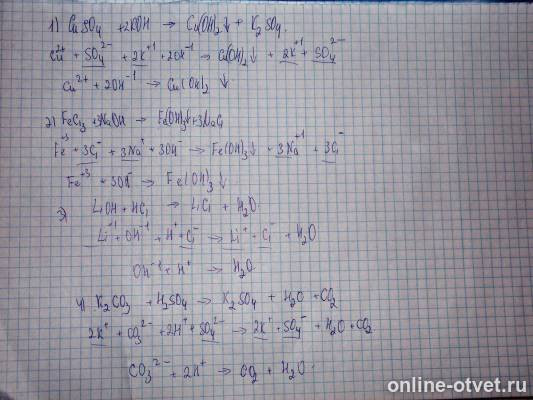 1) CuSO4 + 2KOH → Cu(OH)2↓ + K2SO4.
Cu2+ + SO4 2- + 2K+1 + 2OH-1 → Cu(OH)2↓ + 2K+1 + SO4 2-
Cu2+ + 2OH-1 → Cu(OH)2↓
2) FeCl3 + 3NaOH → Fe(OH)3↓ + 3NaCl
Fe+3 + 3Cl- + 3Na+ + 3OH- → Fe(OH)3↓ + 3Na+1 + 3Cl-
Fe+3 + 3OH- → Fe(OH)3↓
3) LiOH + HCl → LiCl + H2O
Li+1 + OH-1 + H+ + Cl- → Li+ + Cl- + H2O
OH-1 + H+ → H2O
4) K2CO3 + H2SO4 → K2SO4 + H2O + CO2
2K+ + CO3 2- + 2H+ + SO4 2- → 2K+ + SO4 - + H2O + CO2
CO3 2- + 2H+ → CO2 + H2O.
online-otvet.ru